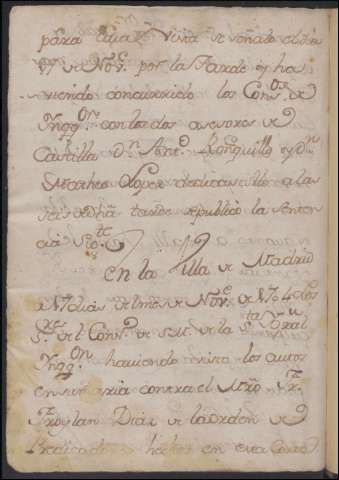 para cuia Vista se señalo el dia
17 de Nov.e por la tarde y ha
viendo concurrido los Cons.os de
Ynqq.on con los dos asesores de
Castilla D.n Ant.o Ronquillo y D.n
Matheo Lopez de dicastillo a las
seis de dha tarde se publicò la senten
cia Sig.te
En la Villa de Madrid
a 17 dias del mes de Nov.e de 1704 Los
S.res del Cons.o de su M. de la S.ta Gral
Ynqq.on haviendo visto los autos
en su maria contra el Mro Fr.
Froylan Diaz de la orden de
Predicadores hechos en esta Corte